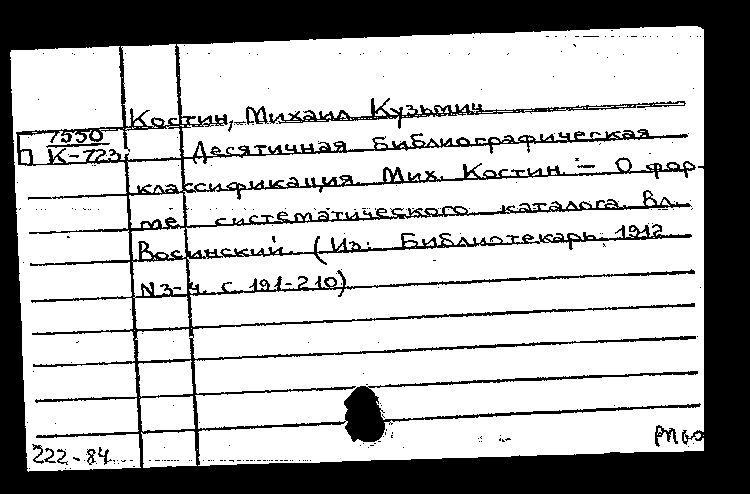 Костин, Михаил Кузьмич
7550
К-723
Десятичная библиографическая
классификация. Мих. Костин. – О фор-
ме систематического каталога. Вл.
Восинский. (Из: Библиотекарь. 1912
N3-4. с. 191-210)
222-84